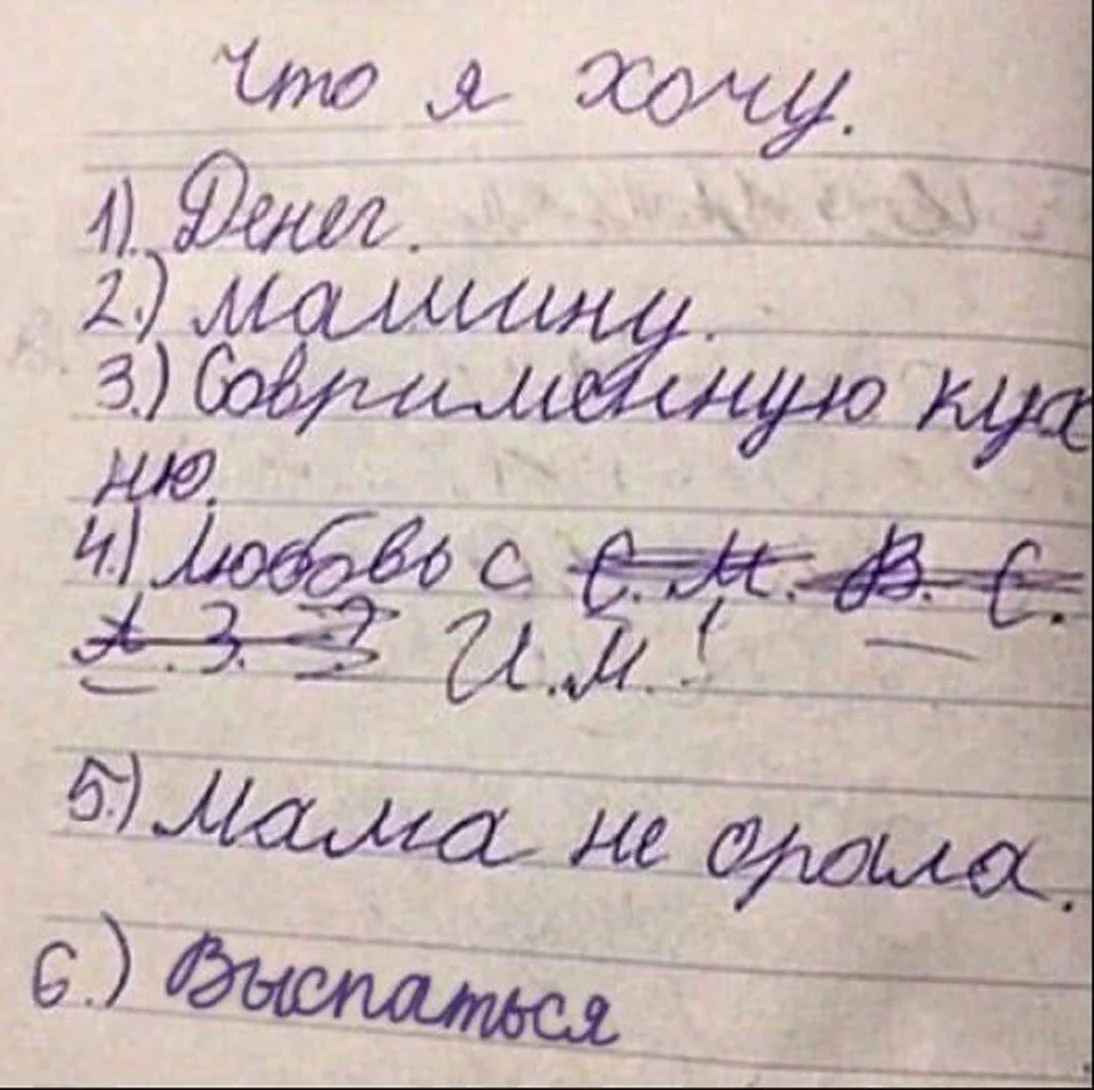 Что я хочу.
1). Денег.
2.) Машину.
3.) Совриménную кух
ню.
4.) Любовь с С. М. В. С.
А. З. И.М.!
5.) Мама не орала.
6.) Выспаться